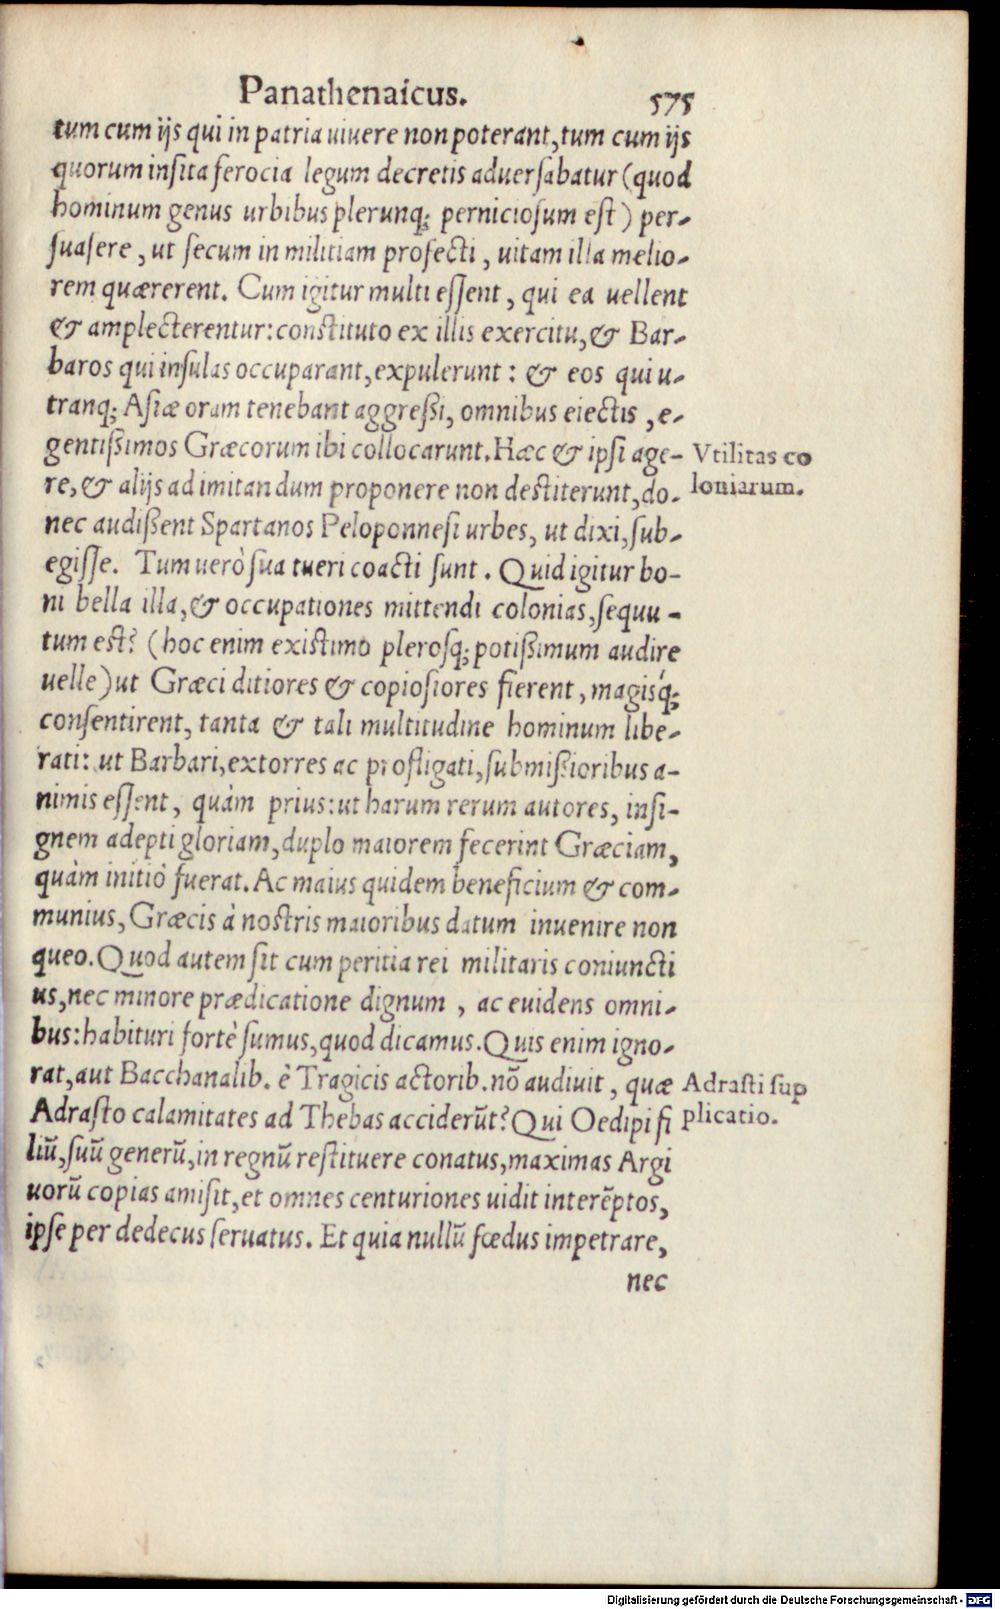 Panathenaicus. 575
tum cum ijs qui in patria uiuere non poterant, tum cum ijs
quorum insita ferocia legum decretis aduersabatur (quod
hominum genus urbibus plerunq; perniciosum est) per-
suasere, ut secum in militiam profecti, uitam illa melio-
rem quærerent. Cum igitur multi essent, qui ea uellent
& amplecterentur: constituto ex illis exercitu, & Bar-
baros qui insulas occuparant, expulerunt: & eos qui u-
tranq; Asiæ oram tenebant aggreßi, omnibus eiectis, e-
gentißimos Græcorum ibi collocarunt. Hæc & ipsi age-
Vtilitas co
re, & alijs ad imitandum proponere non destiterunt, do-
loniarum.
nec audißent Spartanos Peloponnesi urbes, ut dixi, sub-
egisse. Tum uerò sua tueri coacti sunt. Quid igitur bo-
ni bella illa, & occupationes mittendi colonias, sequu-
tum est? (hoc enim existimo plerosq; potißimum audire
uelle) ut Græci ditiores & copiosiores fierent, magisq́;
consentirent, tanta & tali multitudine hominum libe-
rati: ut Barbari, extorres ac profligati, submißioribus a-
nimis essent, quàm prius: ut harum rerum autores, insi-
gnem adepti gloriam, duplo maiorem fecerint Græciam,
quàm initiò fuerat. Ac maius quidem beneficium & com-
munius, Græcis à nostris maioribus datum inuenire non
queo. Quod autem sit cum peritia rei militaris coniuncti
us, nec minore prædicatione dignum, ac euidens omni-
bus: habituri fortè sumus, quod dicamus. Quis enim igno-
rat, aut Bacchanalib. è Tragicis actorib. nō audiuit, quæ
Adrasti sup
Adrasto calamitates ad Thebas acciderūt? Qui Oedipi fi
plicatio.
liū, suū generū, in regnū restituere conatus, maximas Argi
uorū copias amisit, et omnes centuriones uidit interēptos,
ipse per dedecus seruatus. Et quia nullū fœdus impetrare,
nec
Digitalisierung gefördert durch die Deutsche Forschungsgemeinschaft - DFG